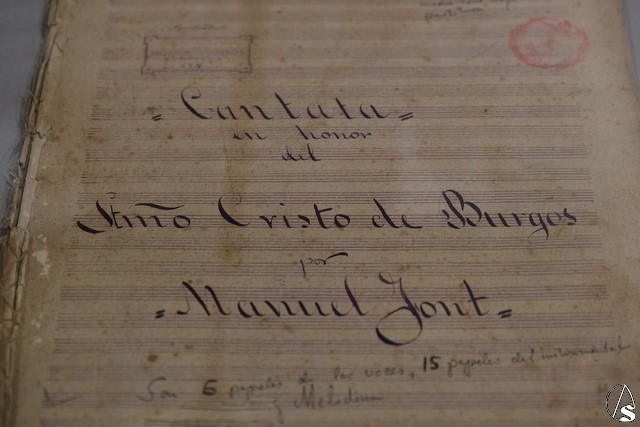 partitura
= Cantata =
en honor
del
Stmo Cristo de Burgos
por
= Manuel Font =
Son 6 papeles de las voces, 15 papeles del instrumental
y Melodium